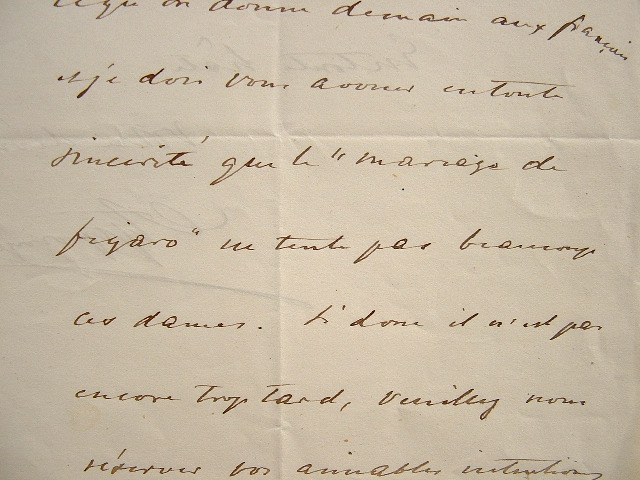 qu'on donne demain aux français
et je dois vous avouer en toute
sincérité que le "mariage de
figaro" ne tente pas beaucoup
ces dames. Si donc il n'est pas
encore trop tard, veuillez nous
réserver vos aimables intentions